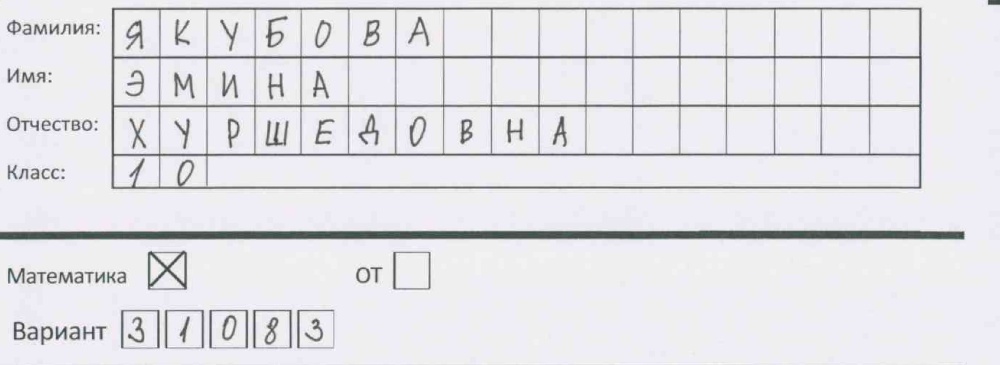 Фамилия: ЯКУБОВА
Имя: ЭМИНА
Отчество: ХУРШЕДОВНА
Класс: 10
Математика ☒ ОТ ☐
Вариант 31083